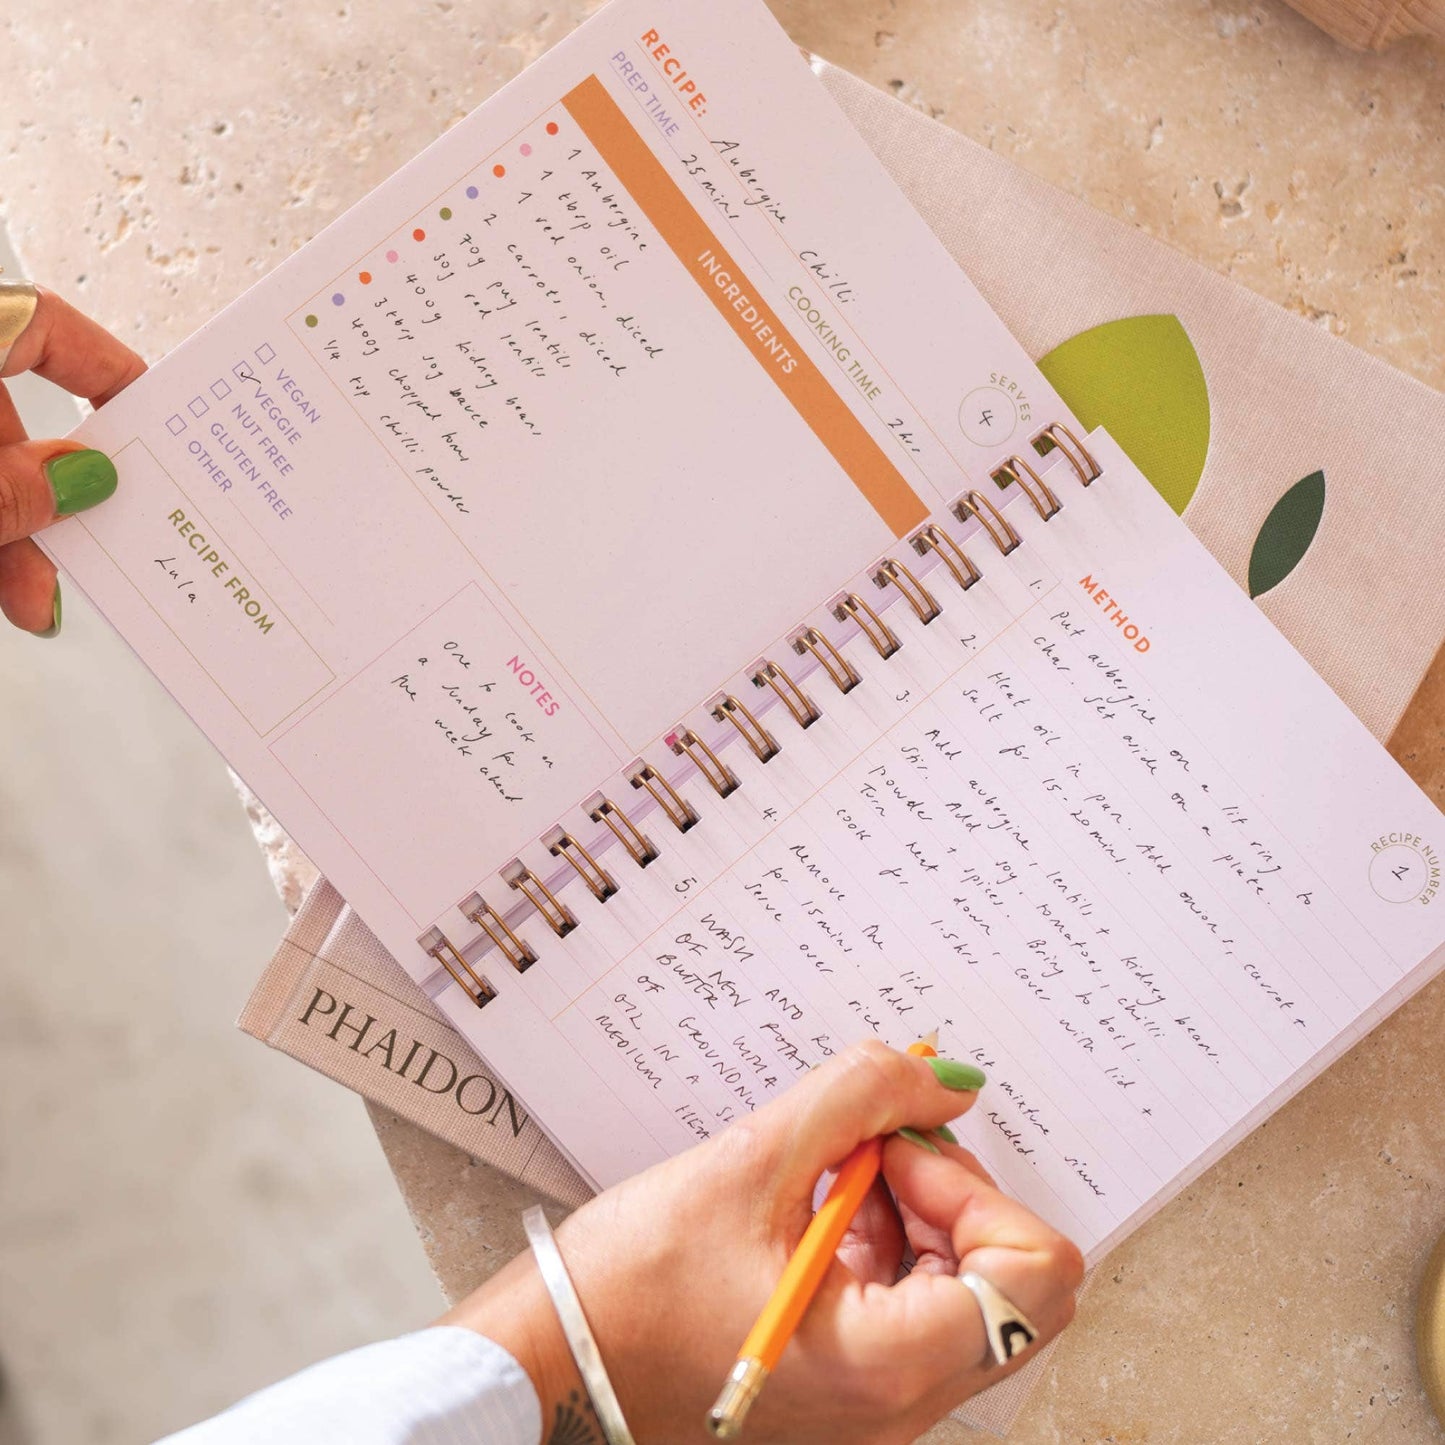 RECIPE: Aubergine Chilli
PREP TIME 25 mins COOKING TIME 2 hrs
SERVES
4
INGREDIENTS
1 Aubergine
1 tbsp oil
1 red onion, diced
2 carrots, diced
70g puy lentils
30g red lentils
400g kidney beans
3 tbsp soy sauce
400g chopped toms
1/4 tsp chilli powder
VEGAN
VEGGIE
NUT FREE
GLUTEN FREE
OTHER
RECIPE FROM
Lula
NOTES
One to cook on
a sunday for
the week ahead
METHOD
RECIPE NUMBER
1
1. Put aubergine on a lit ring to
char. Set aside on a plate.
2. Heat oil in pan. Add onions, carrot +
salt for 15-20 mins.
3. Add aubergine, lentils + kidney beans.
Stir. Add soy, tomatoes, chilli
powder + spices. Bring to boil.
Turn heat down, cover with lid +
cook for 1.5hrs
4. Remove the lid + let mixture simmer
for 15 mins. Add needed.
Serve over rice.
5. WASH AND
OF NEW
BUTTER WITH A
OF
OIL IN A
MEDIUM
PHAIDON